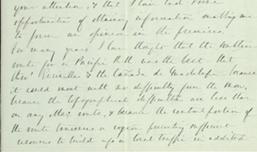 your attention, & that I have had some
opportunities of obtaining information enabling me
to form an opinion in the premises.
For many years I have thought that the Northern
route for a Pacific R.R. was the best that
thro' & the
it could meet with no difficulty from the snow,
because the topographical difficulties are less than
on any other route, & because the central portion of
the route traverses a region presenting sufficient
resources to build up a local traffic in addition